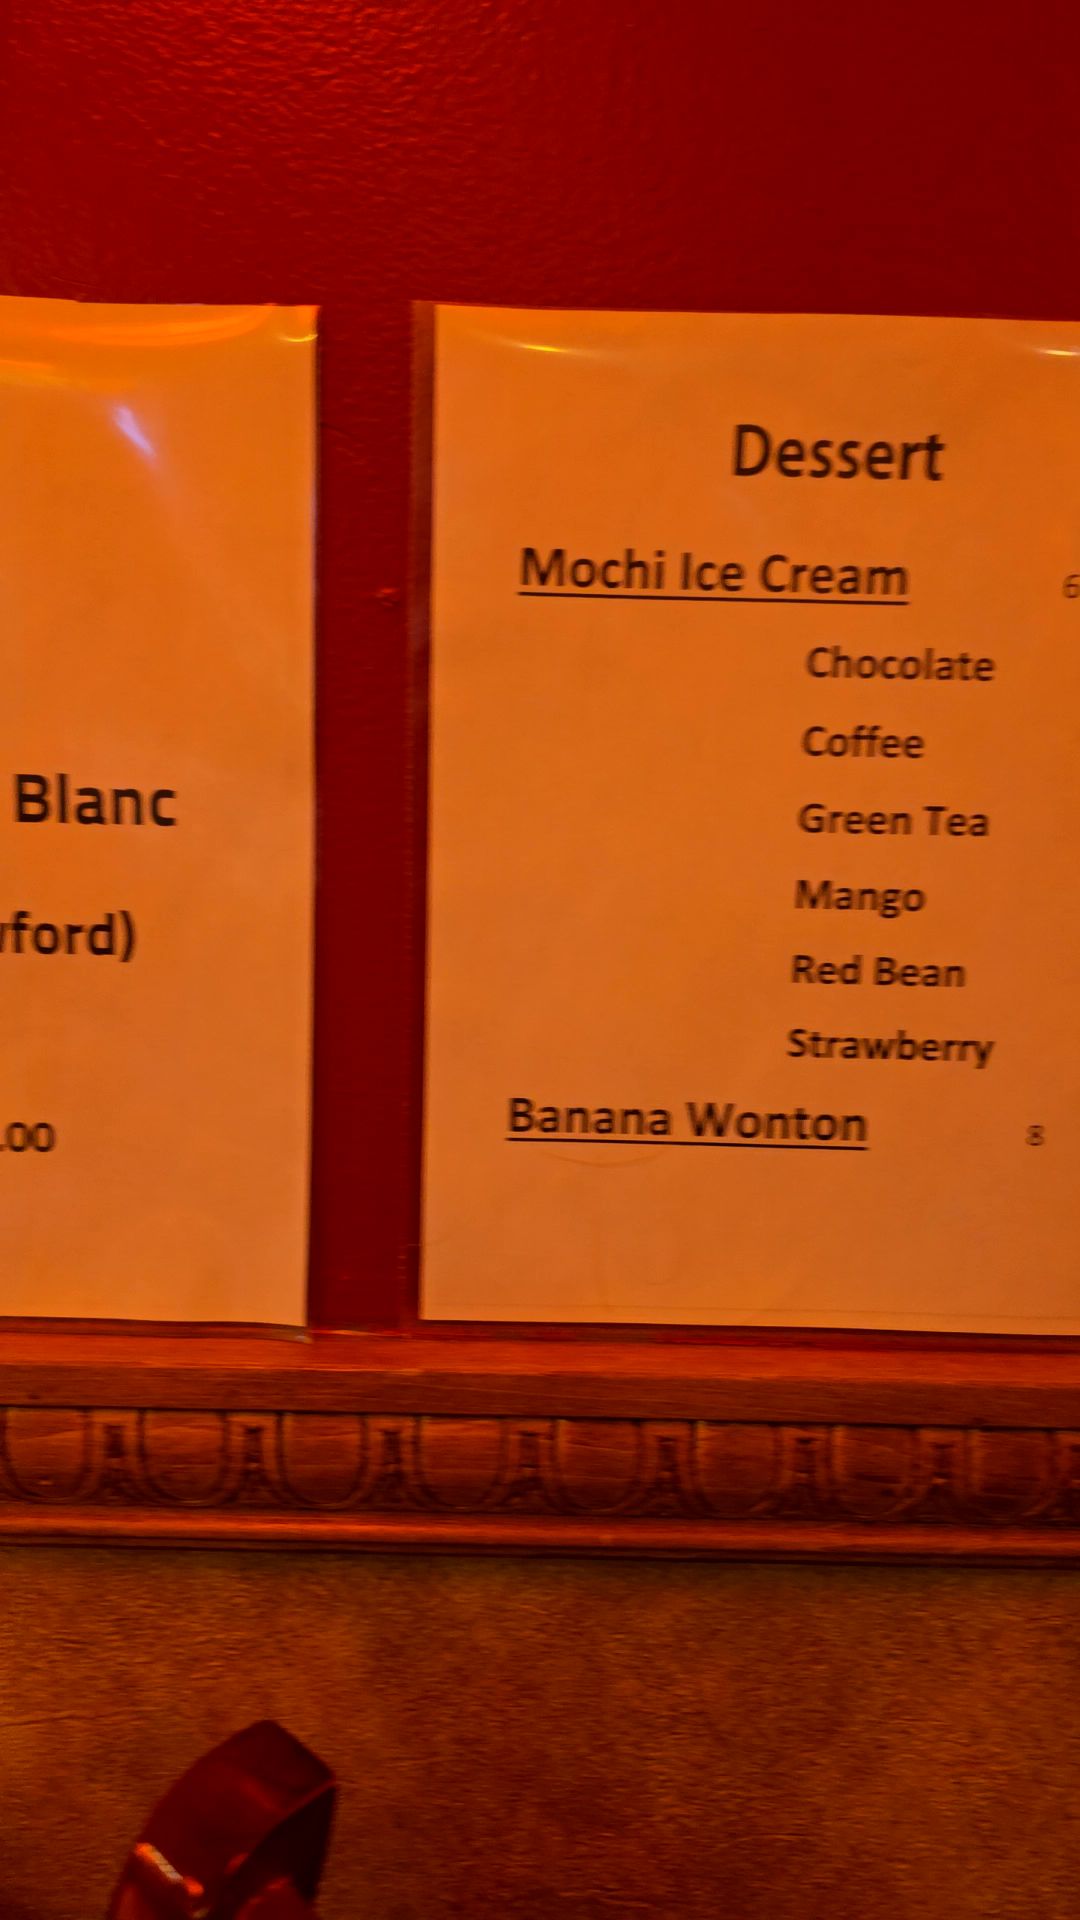 Blanc
wford)
.00
Dessert
Mochi Ice Cream 6
Chocolate
Coffee
Green Tea
Mango
Red Bean
Strawberry
Banana Wonton 8